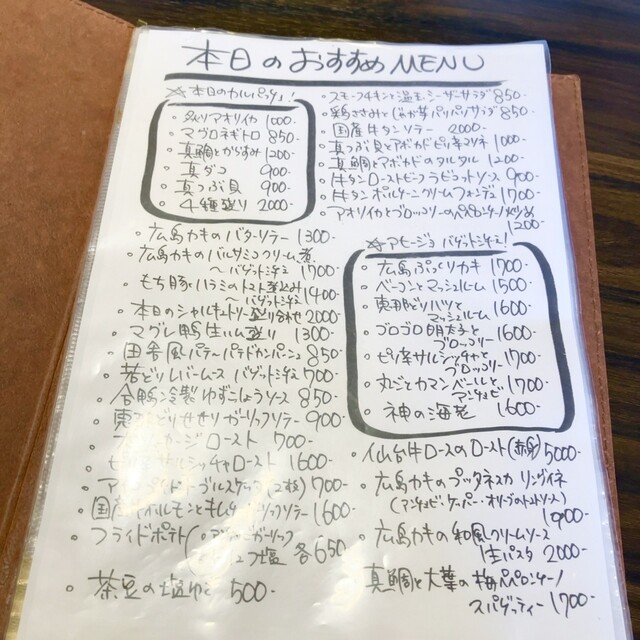 本日のおすすめMENU
☆本日のカルパッチョ!
・アオリイカ 1000
・マグロネギトロ 850
・真鯛とからすみ 1200
・真ダコ 900
・真つぶ貝 900
・4種盛り 2000-
・広島カキのバターソテー 1300-
・広島カキのバルサミコクリーム煮
〜バゲット添え 1700-
・もち豚ハラミのトマト煮込み
〜バゲット添え 1400-
・本日のシャルキュトリー盛り合わせ 2000-
・マグレ鴨生ハム盛り 1300-
・田舎風パテ〜パテドカンパーニュ 850-
・若どりレバームース バゲット添え 700-
・合鴨冷製ゆずこしょうソース 850-
・恵 どりせせりガーリックソテー 900-
ージロースト 700-
サルシッチャロースト 1600-
(2枚) 700-
・国産 ホルモンとキム ソテー 1600-
・フライドポテト ガーリック
塩 各650
・茶豆の塩ゆで 500-
・スモークチキンと温玉シーザーサラダ 850-
・鶏ささみとじゃが芋パリパリサラダ 850-
・国産牛タンソテー 2000-
・真つぶ貝とアボカドピリ辛コチュ 1000-
・真鯛とアボカドのタルタル 1200-
・牛タンローストビーフラビゴットソース 900-
・牛タンポルチーニクリームフォンデュ 1700-
・アオリイカとブロッコリーのペペロンチーノ炒め
1200-
☆アヒージョ バゲット添え!
・広島ぷっくりカキ 1700-
・ベーコンとマッシュルーム 1500-
・恵 どりハツと
マッシュルーム 1600-
・ゴロゴロ明太子と
ブロッコリー 1600-
・ピリ辛サルシッチャと
ブロッコリー 1700-
・丸ごとカマンベールと
アンチョビ 1700-
・神の海老 1600-
・仙台牛ロースのロースト(赤身) 5000-
・広島カキのプッタネスカ リングイネ
(アンチョビ・ケッパー・オリーブのトマトソース)
1900-
・広島カキの和風クリームソース
生パスタ 2000-
・真鯛と大葉の梅ペペロンチーノ
スパゲッティー 1700-